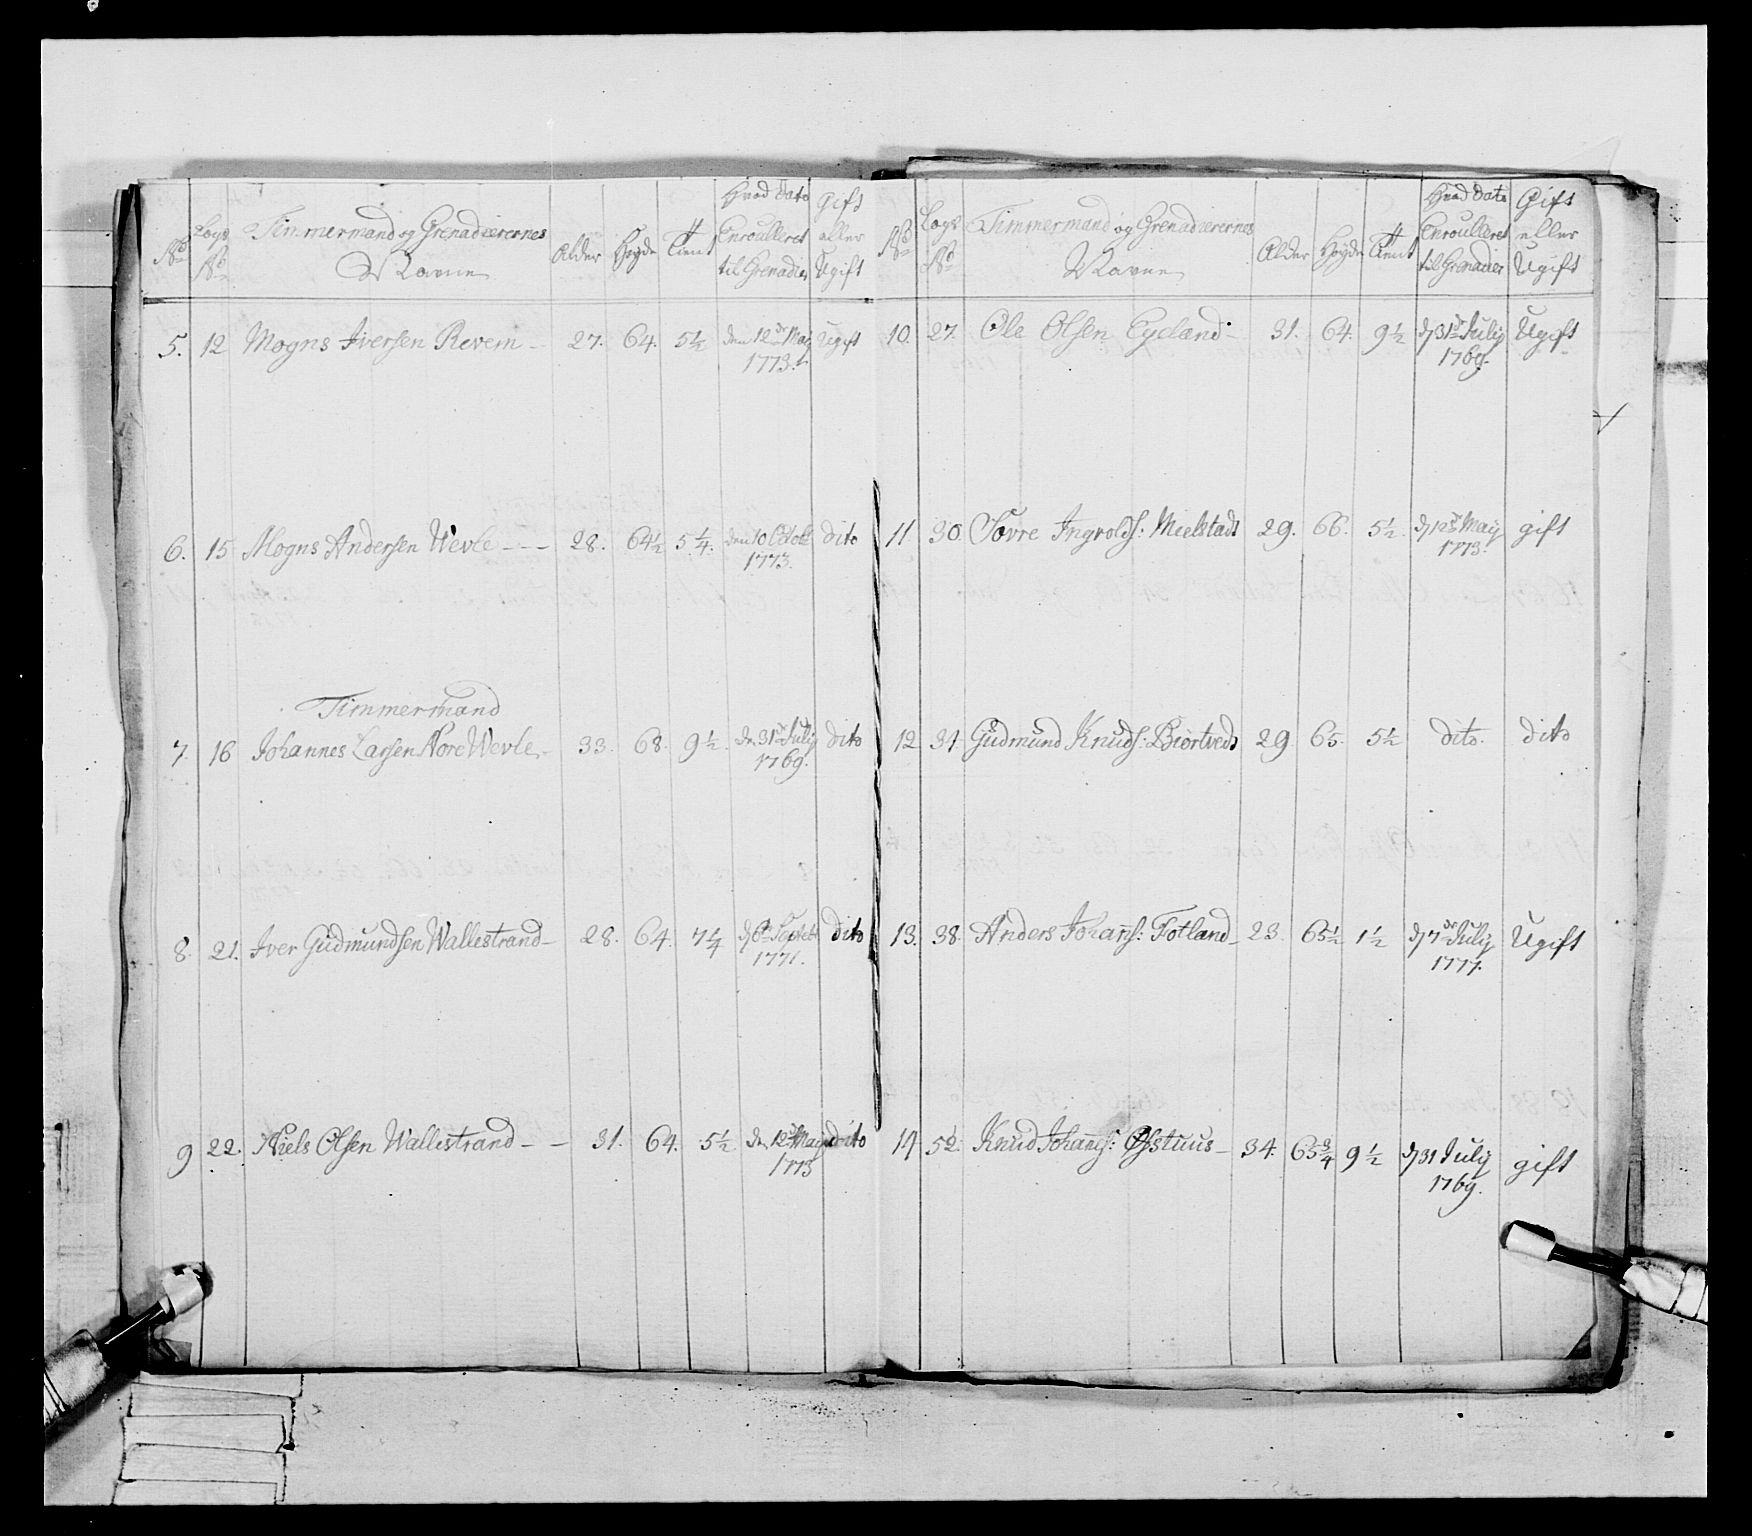 No Lægs No Timmermand og Grenadeerernes Navne Alder Høyde # Tient Hvad Dato Enroulleret til Grenadier Gift eller Ugift
5. 12 Mogns Iversen Revem 27. 64. 5½ den 12te May 1773. Ugift
6. 15 Mogns Andersen Wevle 28. 64½ 5¼. den 10 Octob 1773. dito
Timmermand
7. 16 Johannes Larsen Nore Wevle 33. 68. 9½ dn 31te Julij 1769. dito
8. 21. Iver Gudmundsen Wallestrand 28. 64. 7¼ d 6te Septebr 1771. dito
9 22. Niels Olsen Wallestrand 31. 64. 5½ dn 12te Maij 1773 dito
No Lægs No Timmermand og Grenadeerernes Navne Alder Høyde # Tient Hvad Dato Enroulleret til Grenadier Gift eller Ugift
10. 27. Ole Olsen Egeland 31. 64. 9½ d 31te Julij 1769. Ugift
11. 30. Tovre Ingvolds: Mielstad 29. 66. 5½. d 12te Maij 1773. gift
12 34 Gudmund Knuds: Biørtvedt 29 65. 5½ dito. dito
13. 38. Anders Johans: Totland 23. 65½ 1½ d 7de Julij 1777. Ugift
14 52. Knud Johans: Øfstuus 34. 65¾ 9½ d 31 Julij 1769. gift